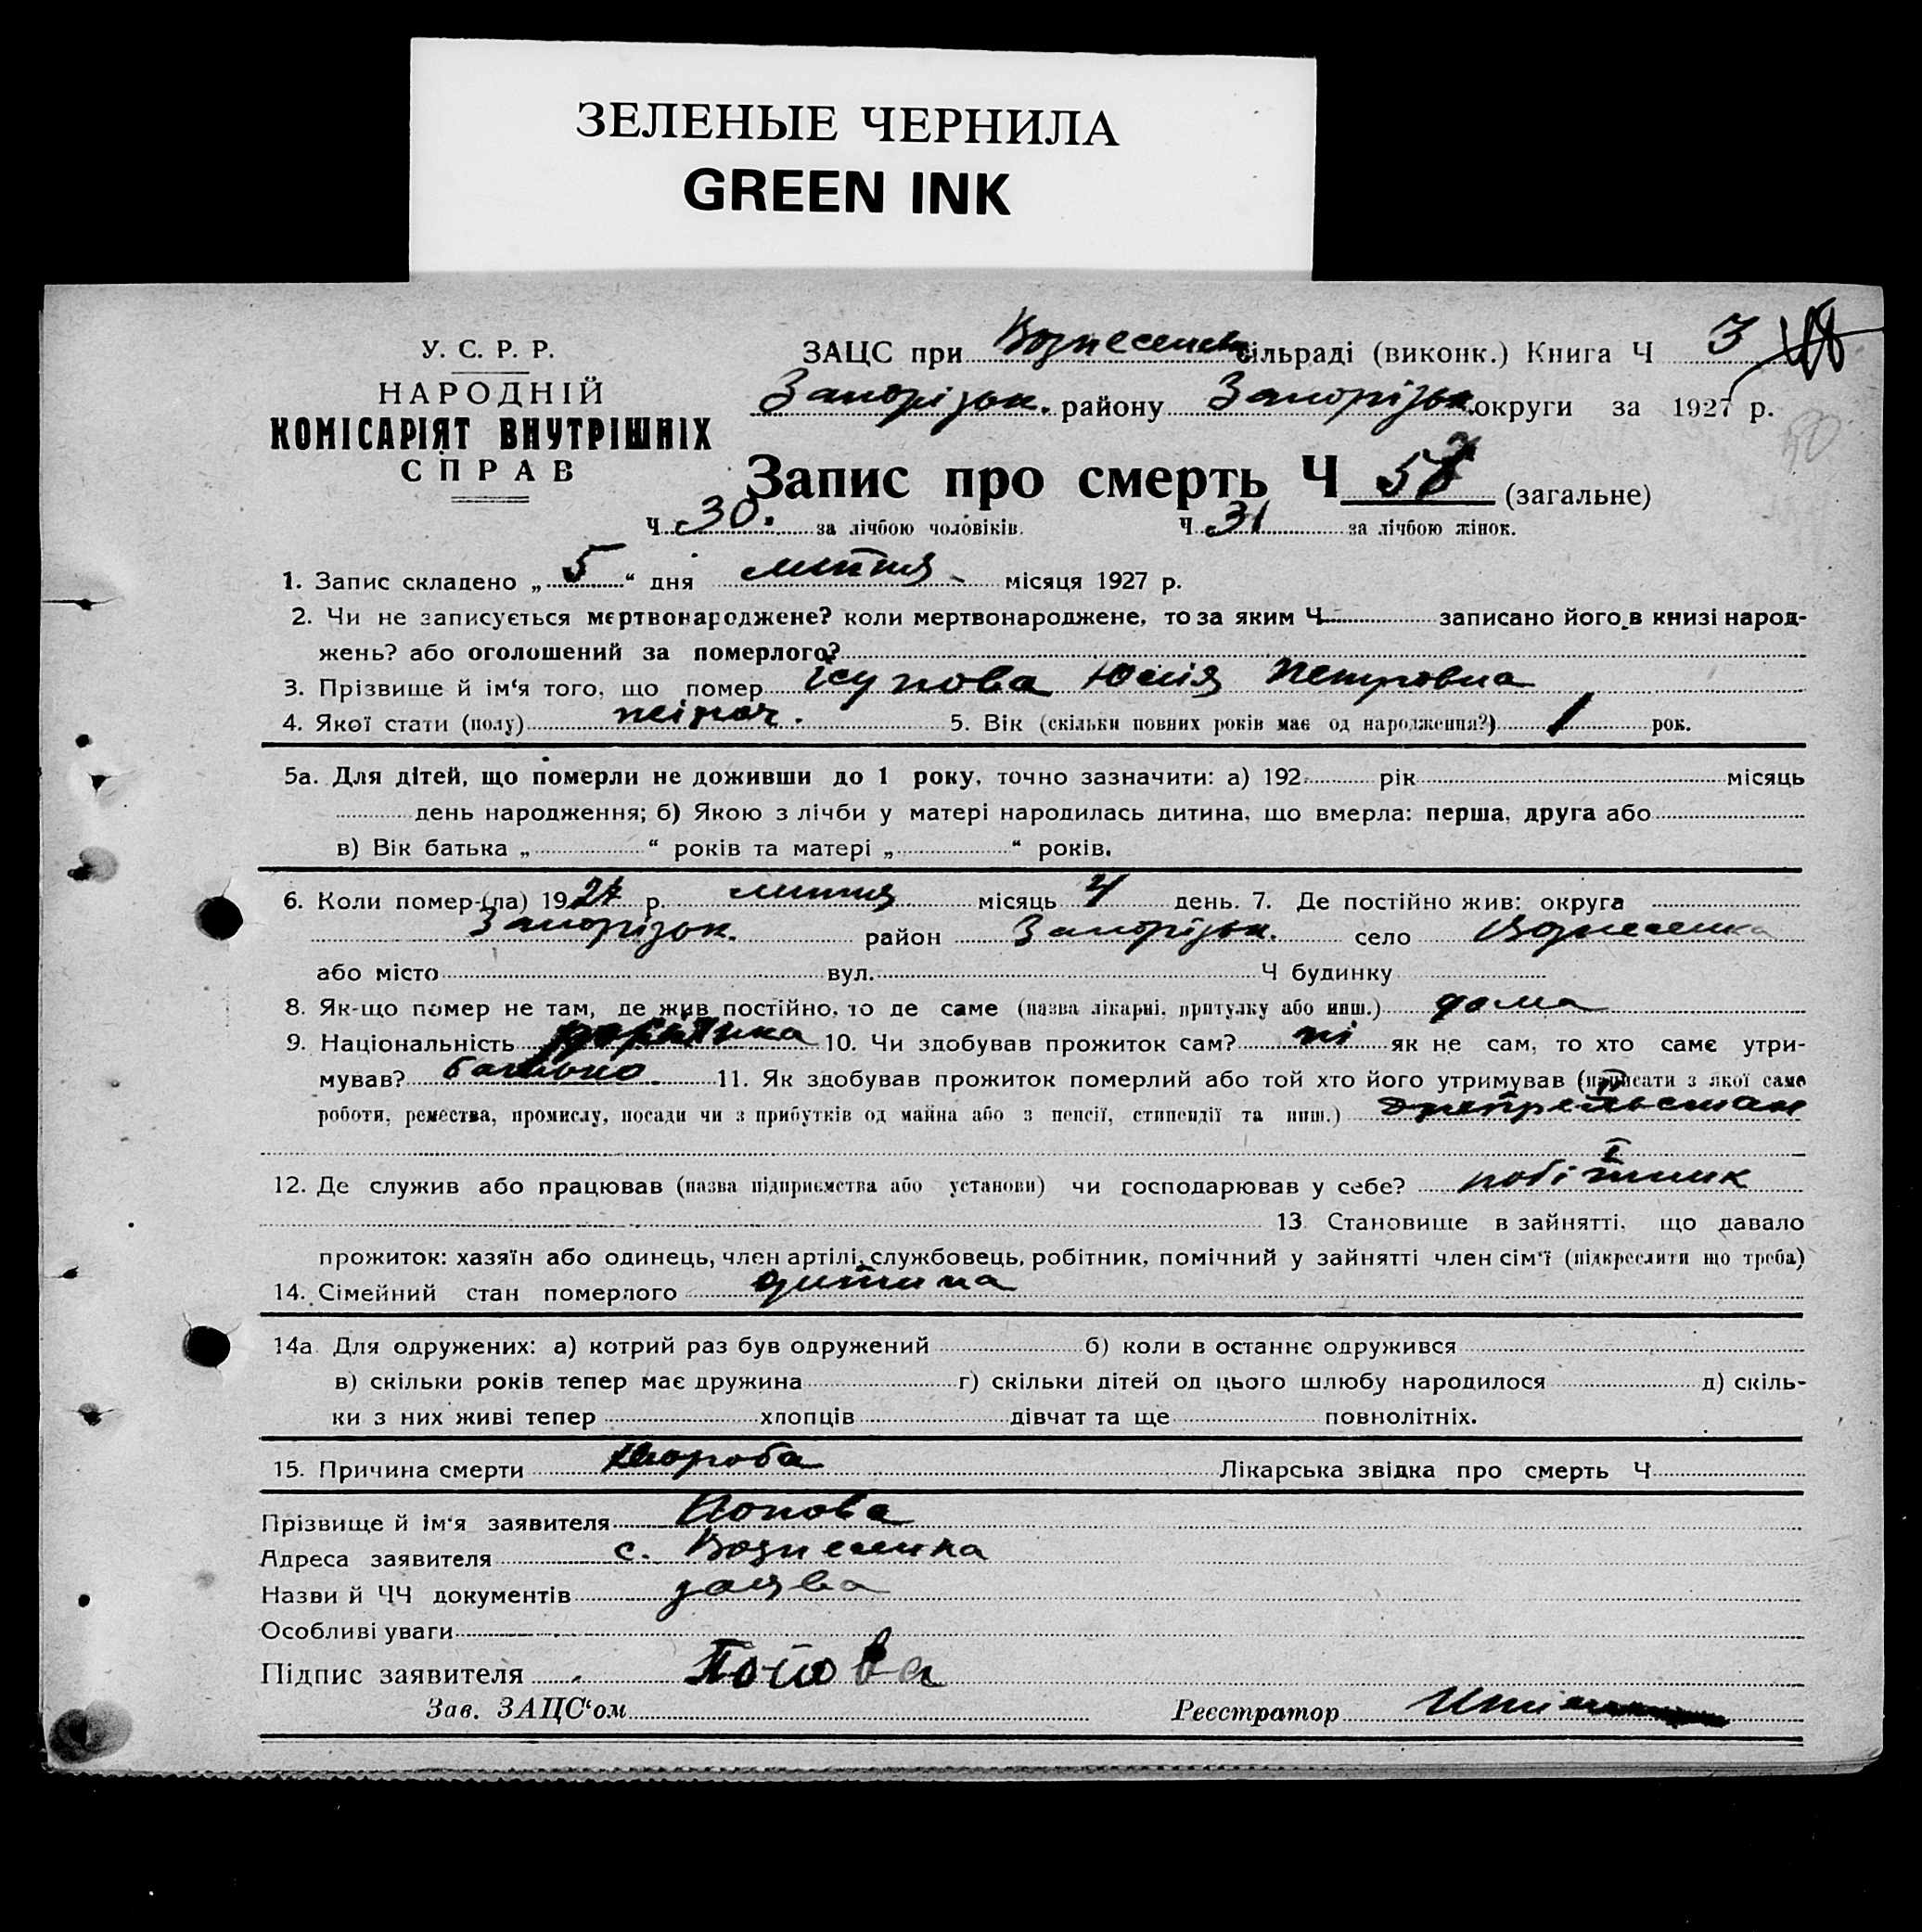 ЗЕЛЕНЫЕ ЧЕРНИЛА
GREEN INK
У. С. Р. Р.
НАРОДНІЙ
КОМІСАРІЯТ ВНУТРІШНІХ
СПРАВ
ЗАЦС при Вознесенськ сільраді (виконк.) Книга Ч 3
Запорізьк. району Запорізьк. округи за 1927 р.
50
Запис про смерть Ч 58 (загальне)
Ч 30. за лічбою чоловіків. Ч 31 за лічбою жінок.
1. Запис складено „ 5 “ дня липня місяця 1927 р.
2. Чи не записується мертвонароджене? коли мертвонароджене, то за яким Ч записано його в книзі народ-
жень? або оголошений за померлого?
3. Прізвище й ім‘я того, що помер Юлія Петровна
4. Якої стати (полу) жіноч. 5. Вік (скільки повних років має од народження?) 1 рок.
5а. Для дітей, що померли не доживши до 1 року, точно зазначити: а) 192 рік місяць
день народження; б) Якою з лічби у матері народилась дитина, що вмерла: перша, друга або
в) Вік батька „ “ років та матері „ “ років.
6. Коли помер-(ла) 1927 р. липня місяць 4 день. 7. Де постійно жив: округа
Запорізьк. район Запорізьк. село Вознесенка
або місто вул. Ч будинку
8. Як-що помер не там, де жив постійно, то де саме (назва лікарні, притулку або инш.) дома
9. Національність 10. Чи здобував прожиток сам? ні як не сам, то хто саме утри-
мував? батько. 11. Як здобував прожиток померлий або той хто його утримував (написати з якої саме
роботи, ремества, промислу, посади чи з прибутків од майна або з пенсії, стипендії та инш.)
12. Де служив або працював (назва підприємства або установи) чи господарював у себе? робітник
13. Становище в зайнятті, що давало
прожиток: хазяїн або одинець, член артілі, службовець, робітник, помічний у зайнятті член сім‘ї (підкреслити що треба)
14. Сімейний стан померлого дитина
14а. Для одружених: а) котрий раз був одружений б) коли в останнє одружився
в) скільки років тепер має дружина г) скільки дітей од цього шлюбу народилося д) скіль-
ки з них живі тепер хлопців дівчат та ще повнолітніх.
15. Причина смерти хвороба Лікарська звідка про смерть Ч
Прізвище й ім‘я заявителя Попова
Адреса заявителя с. Вознесенка
Назви й ЧЧ документів заява
Особливі уваги
Підпис заявителя Попова
Зав. ЗАЦС‘ом Реєстратор